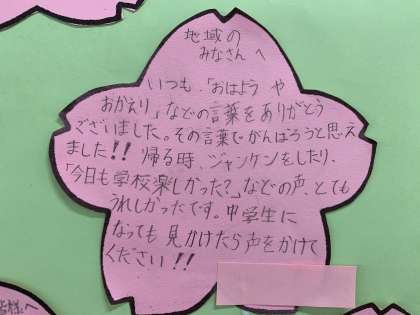 地域の
みなさんへ
いつも、「おはよう や
おかえり」などの言葉をありがとう
ございました。その言葉でがんばろうと思え
ました!! 帰る時、ジャンケンをしたり、
「今日も学校楽しかった?」などの声、とても
うれしかったです。中学生に
なっても見かけたら声をかけて
ください!!
皆様へ